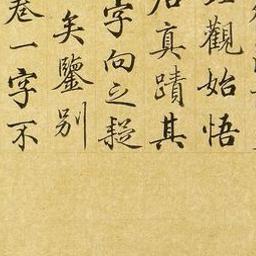 觀始悟
真蹟其
字向之疑
矣鑒别
卷一字不